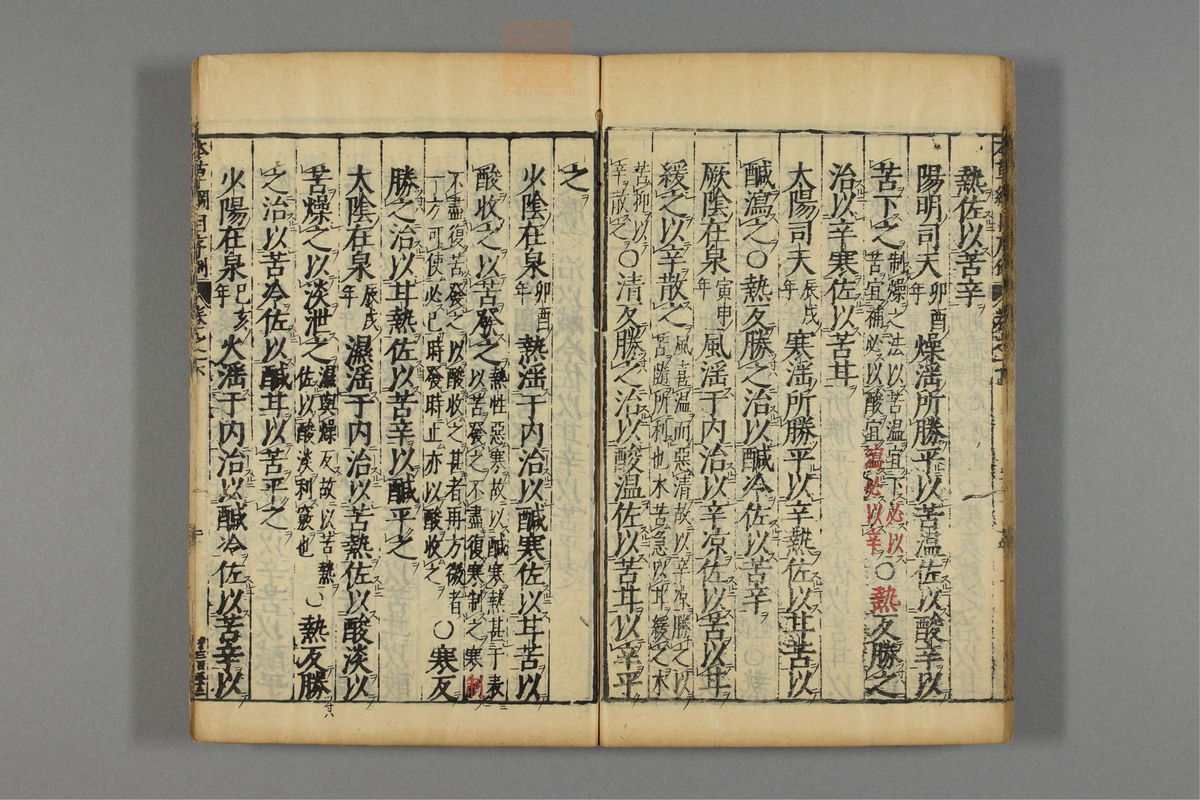 熱佐以苦辛
陽明司天卯酉年燥淫所勝平以苦温佐以酸辛以
苦下之制燥之法以苦温宜下必以苦宜補必以酸宜温必以辛〇熱反勝之
治以辛寒佐以苦甘
太陽司天辰戌年寒淫所勝平以辛熱佐以甘苦以
鹹瀉之〇熱反勝之治以鹹冷佐以苦辛
厥陰在泉寅申年風淫于内治以辛凉佐以苦以甘
緩之以辛散之風喜温而惡清故以辛凉勝之以苦隨所利也木苦急以甘緩之木
苦抑以辛散之〇清反勝之治以酸温佐以苦甘以辛平
之
少陰在泉卯酉年熱淫于内治以鹹寒佐以甘苦以
酸收之以苦發之熱性惡寒故以鹹寒熱甚于表以苦發之不盡復寒制之寒制
不盡復苦發之以酸收之甚者再方微者一方可使必已時發時止亦以酸收之〇寒反
勝之治以甘熱佐以苦辛以鹹平之
太陰在泉辰戌年濕淫于内治以苦熱佐以酸淡以
苦燥之以淡泄之濕與燥反故以苦熱佐以酸淡利竅也〇熱反勝
之治以苦冷佐以鹹甘以苦平之
少陽在泉巳亥年火淫于内治以鹹冷佐以苦辛以